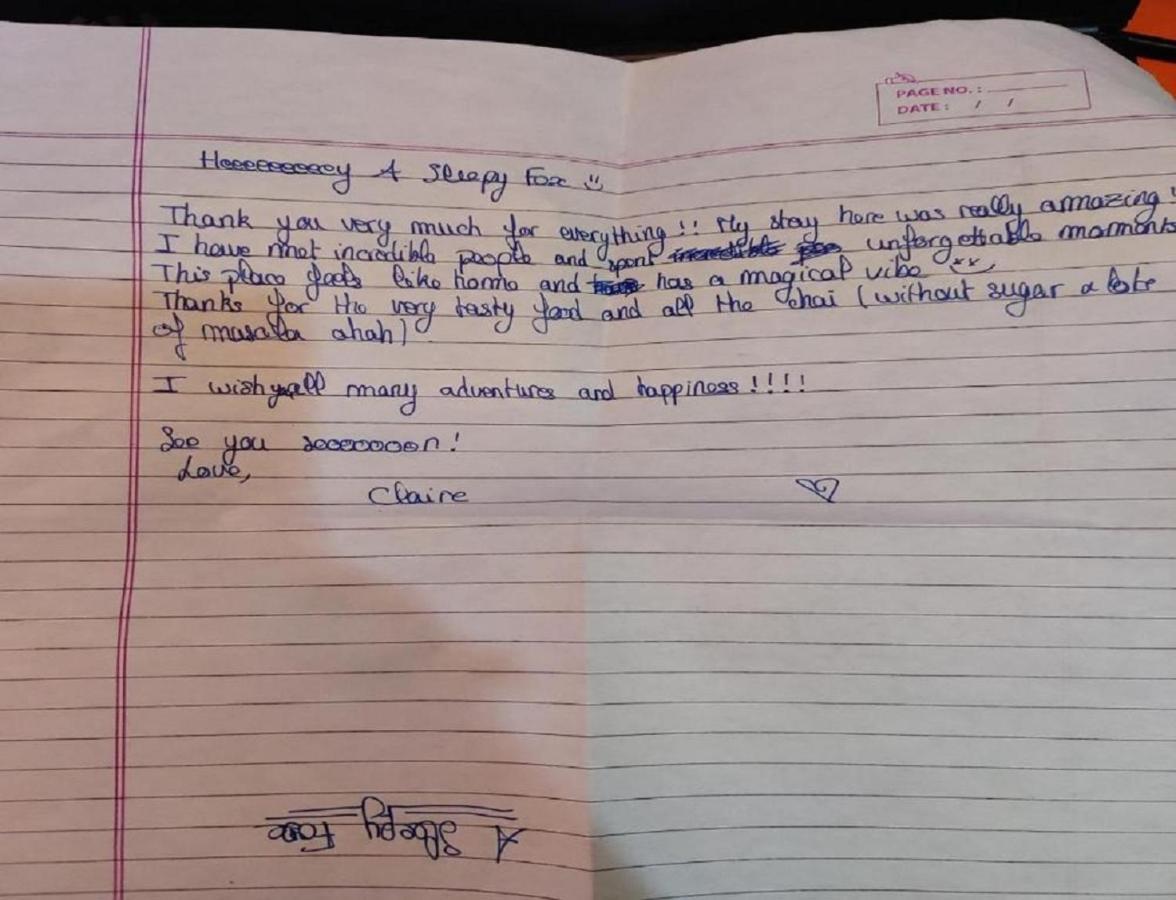 PAGE NO. :
DATE : / /
Heeeeeeeeey A Sleepy Fox
Thank you very much for everything !! My stay here was really amazing !
I have met incredible people and spent incredible unforgettable moments
This place feels like home and has a magical vibe
Thanks for the very tasty food and all the chai (without sugar a lote
of masala ahah)
I wish y'all many adventures and happiness !!!!
See you soooooooon !
Love,
Claire
A Sleepy Fox